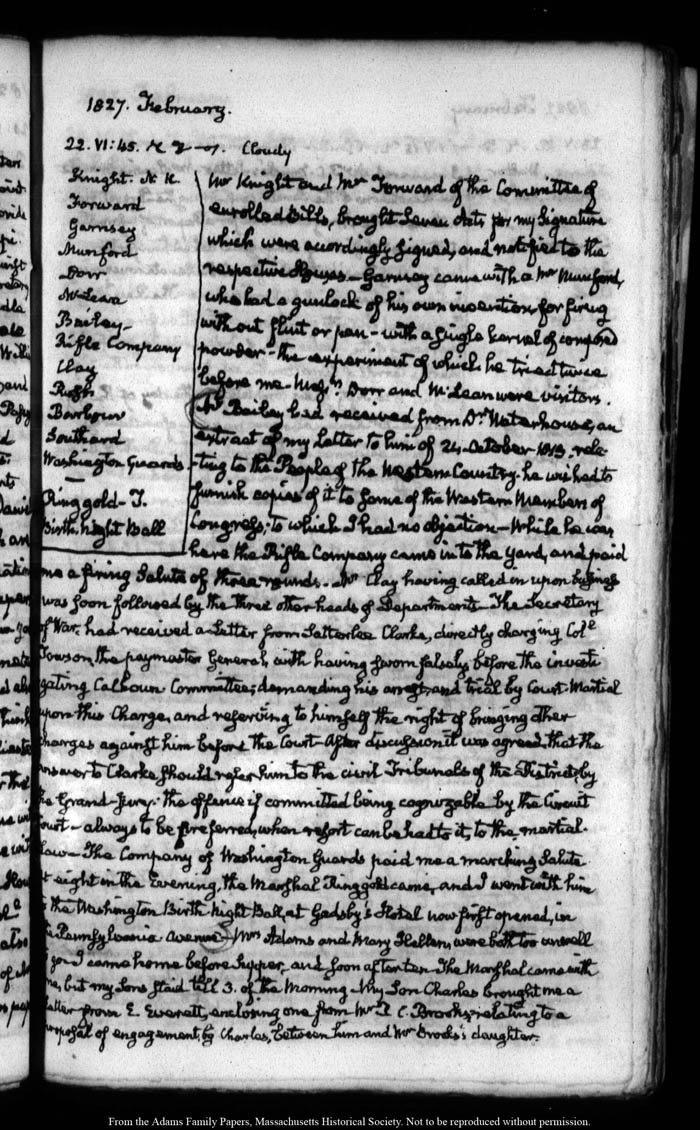 1827. February.
22. VI: 45. Cloudy
Knight. N. R.
Forward
Garnsey
Munford
Dorr
McLean
Bailey
Rifle Company
Clay
Rush
Barbour
Southard
Washington Guards
Ringgold- T.
Birth Night Ball
Mr Knight and Mr Forward of the Committee of
enrolled Bills, brought seven Acts for my Signature
which were accordingly signed, and notified to the
respective Houses — Garnsey came with a Mr Munford,
who had a gunlock of his own invention for firing
without flint or pan - with a single kernel of compos'd
powder - the experiment of which he tried twice
before me. Dorr and McLean were visitors.
Mr Bailey had received from Dr. Waterhouse, an
extract of my Letter to him of 24. October 1813. rela-
-ting to the People of the Western Country. he wished to
furnish copies of it to some of the Western Members of
Congress; to which I had no objection — While he was
here the Rifle Company came into the yard, and paid
me a firing Salute of three rounds. Mr Clay having called on upon business
was soon followed by the three other heads of Departments — The Secretary
of War, had received a Letter from Satterlee Clarke, directly charging Colo
Towson, the paymaster General, with having sworn falsely before the investi
gating Calhoun Committee; demanding his arrest, and trial by Court-Martial
upon this Charge, and reserving to himself the right of bringing other
charges against him before the Court — After discussion it was agreed that the
answer to Clarke should refer him to the civil Tribunals of the District, by
the Grand-Jury: the offence if committed being cognizable by the Circuit
Court — always to be preferred, when resort can be had to it, to the martial
Law — The Company of Washington Guards paid me a marching Salute
At eight in the Evening, the Marshal Ringgold came, and I went with him
to the Washington Birth Night Ball, at Gadsby's Hotel now first opened, in
the Pennsylvania Avenue — Mrs Adams and Mary Hellen, were both too unwell
to go. I came home before Supper, and soon after ten. The Marshal came with
me, but my Sons staid till 3. of the Morning. My Son Charles brought me a
Letter from E. Everett, enclosing one from Mr P. C. Brooks, relating to a
proposal of engagement, by Charles, between him and Mr Brooks's daughter.
From the Adams Family Papers, Massachusetts Historical Society. Not to be reproduced without permission.